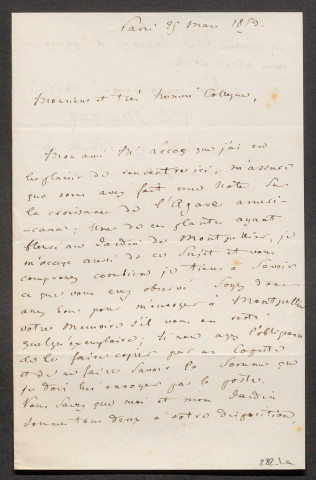 Paris 25 Mars 1859.
Monsieur et très honoré Collegue,
Mon ami Mr Lecoq que j'ai eu
le plaisir de rencontrer ici, m'assure
que vous avez fait une Note sur
la croissance de l'Agave ameri-
-cana; Une de ces plantes ayant
fleuri au Jardin des Montpellier, je
m'occupe aussi de ce Sujet et vous
comprenez combien je tiens à savoir
ce que vous avez observé. Soyez donc
assez bon pour m'envoyer à Montpellier
votre Memoire s'il vous en reste
quelqu'exemplaire; Si non ayez l'obligeance
de le faire copier par un Copiste
et de me faire savoir la Somme que
je dois lui envoyer par la poste.
Vous savez que moi et mon Jardin
sommes tous deux à votre disposition,